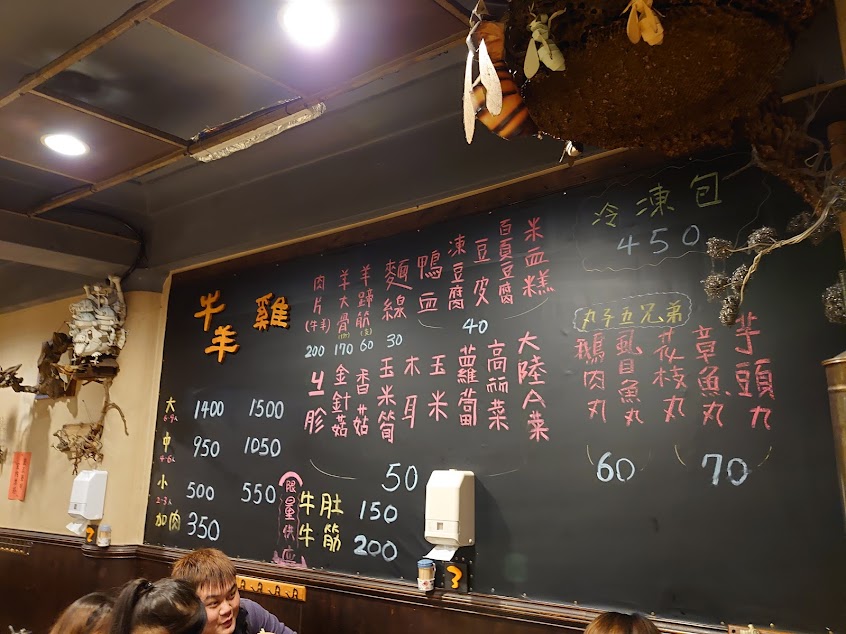 牛羊 雞
大 6-9人 1400 1500
中 4-6人 950 1050
小 2-3人 500 550
加肉 350
肉片(牛羊) 200
羊大骨 170
羊蹄筋 60
麵線 30
鴨血
凍豆腐
豆皮
百頁豆腐
米血糕
40
金針菇
香菇
玉米筍
木耳
玉米
蘿蔔
高麗菜
大陸A菜
50
限量供應
牛肚 150
牛筋 200
冷凍包
450
丸子五兄弟
鵝肉丸
虱目魚丸
花枝丸
章魚丸
芋頭丸
60
70